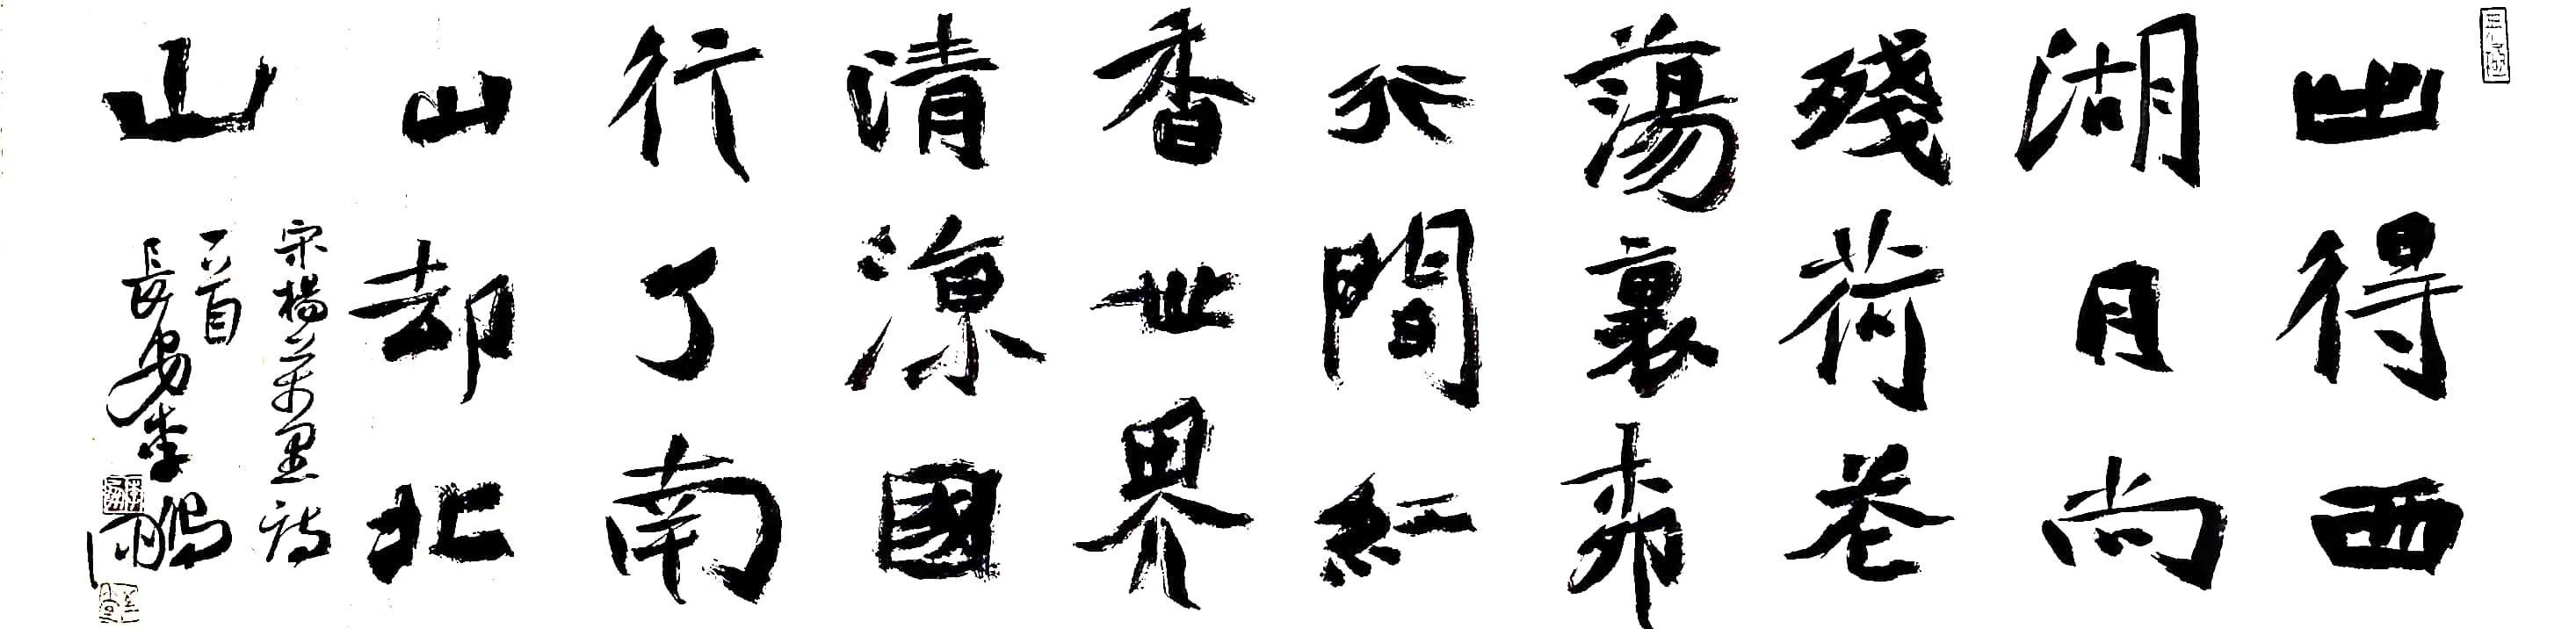 出得西
湖月尚
殘荷花
蕩裏桺
行間紅
香世界
清涼國
行了南
山却北
山
宋楊萬里詩
一首
長安李鵬